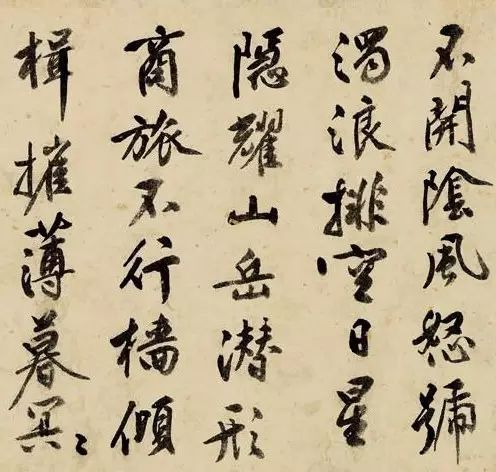 不開陰風怒號
濁浪排空日星
隱耀山岳潛形
商旅不行檣傾
楫摧薄暮冥〻